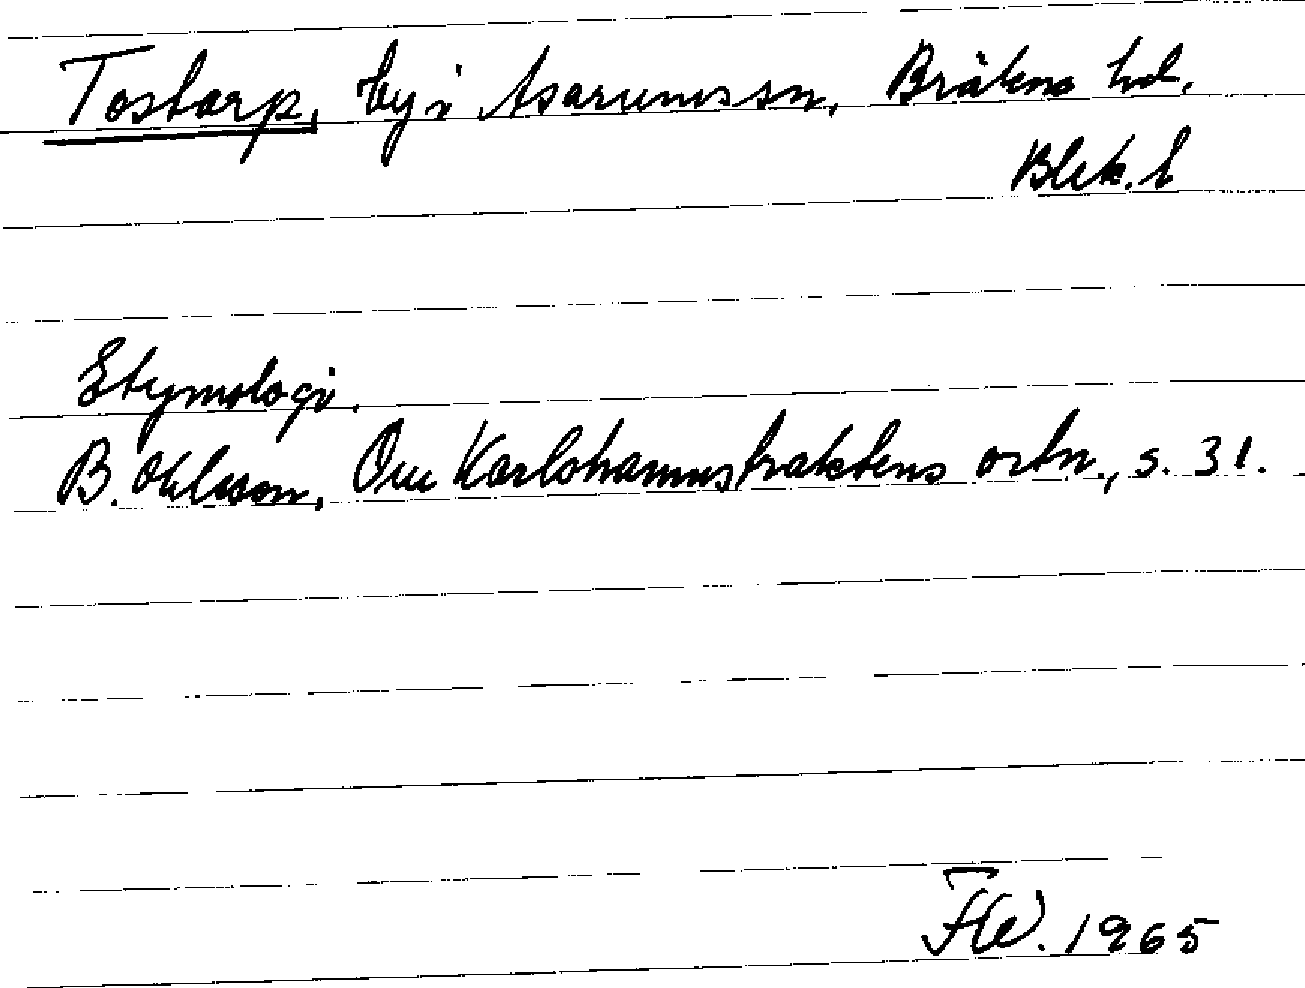 Tostarp, by i Asarums sn, Bräkne hd.
Blek. l
Etymologi.
B. Ohlsson, Om Karlshamnstraktens ortn., s. 31.
1965